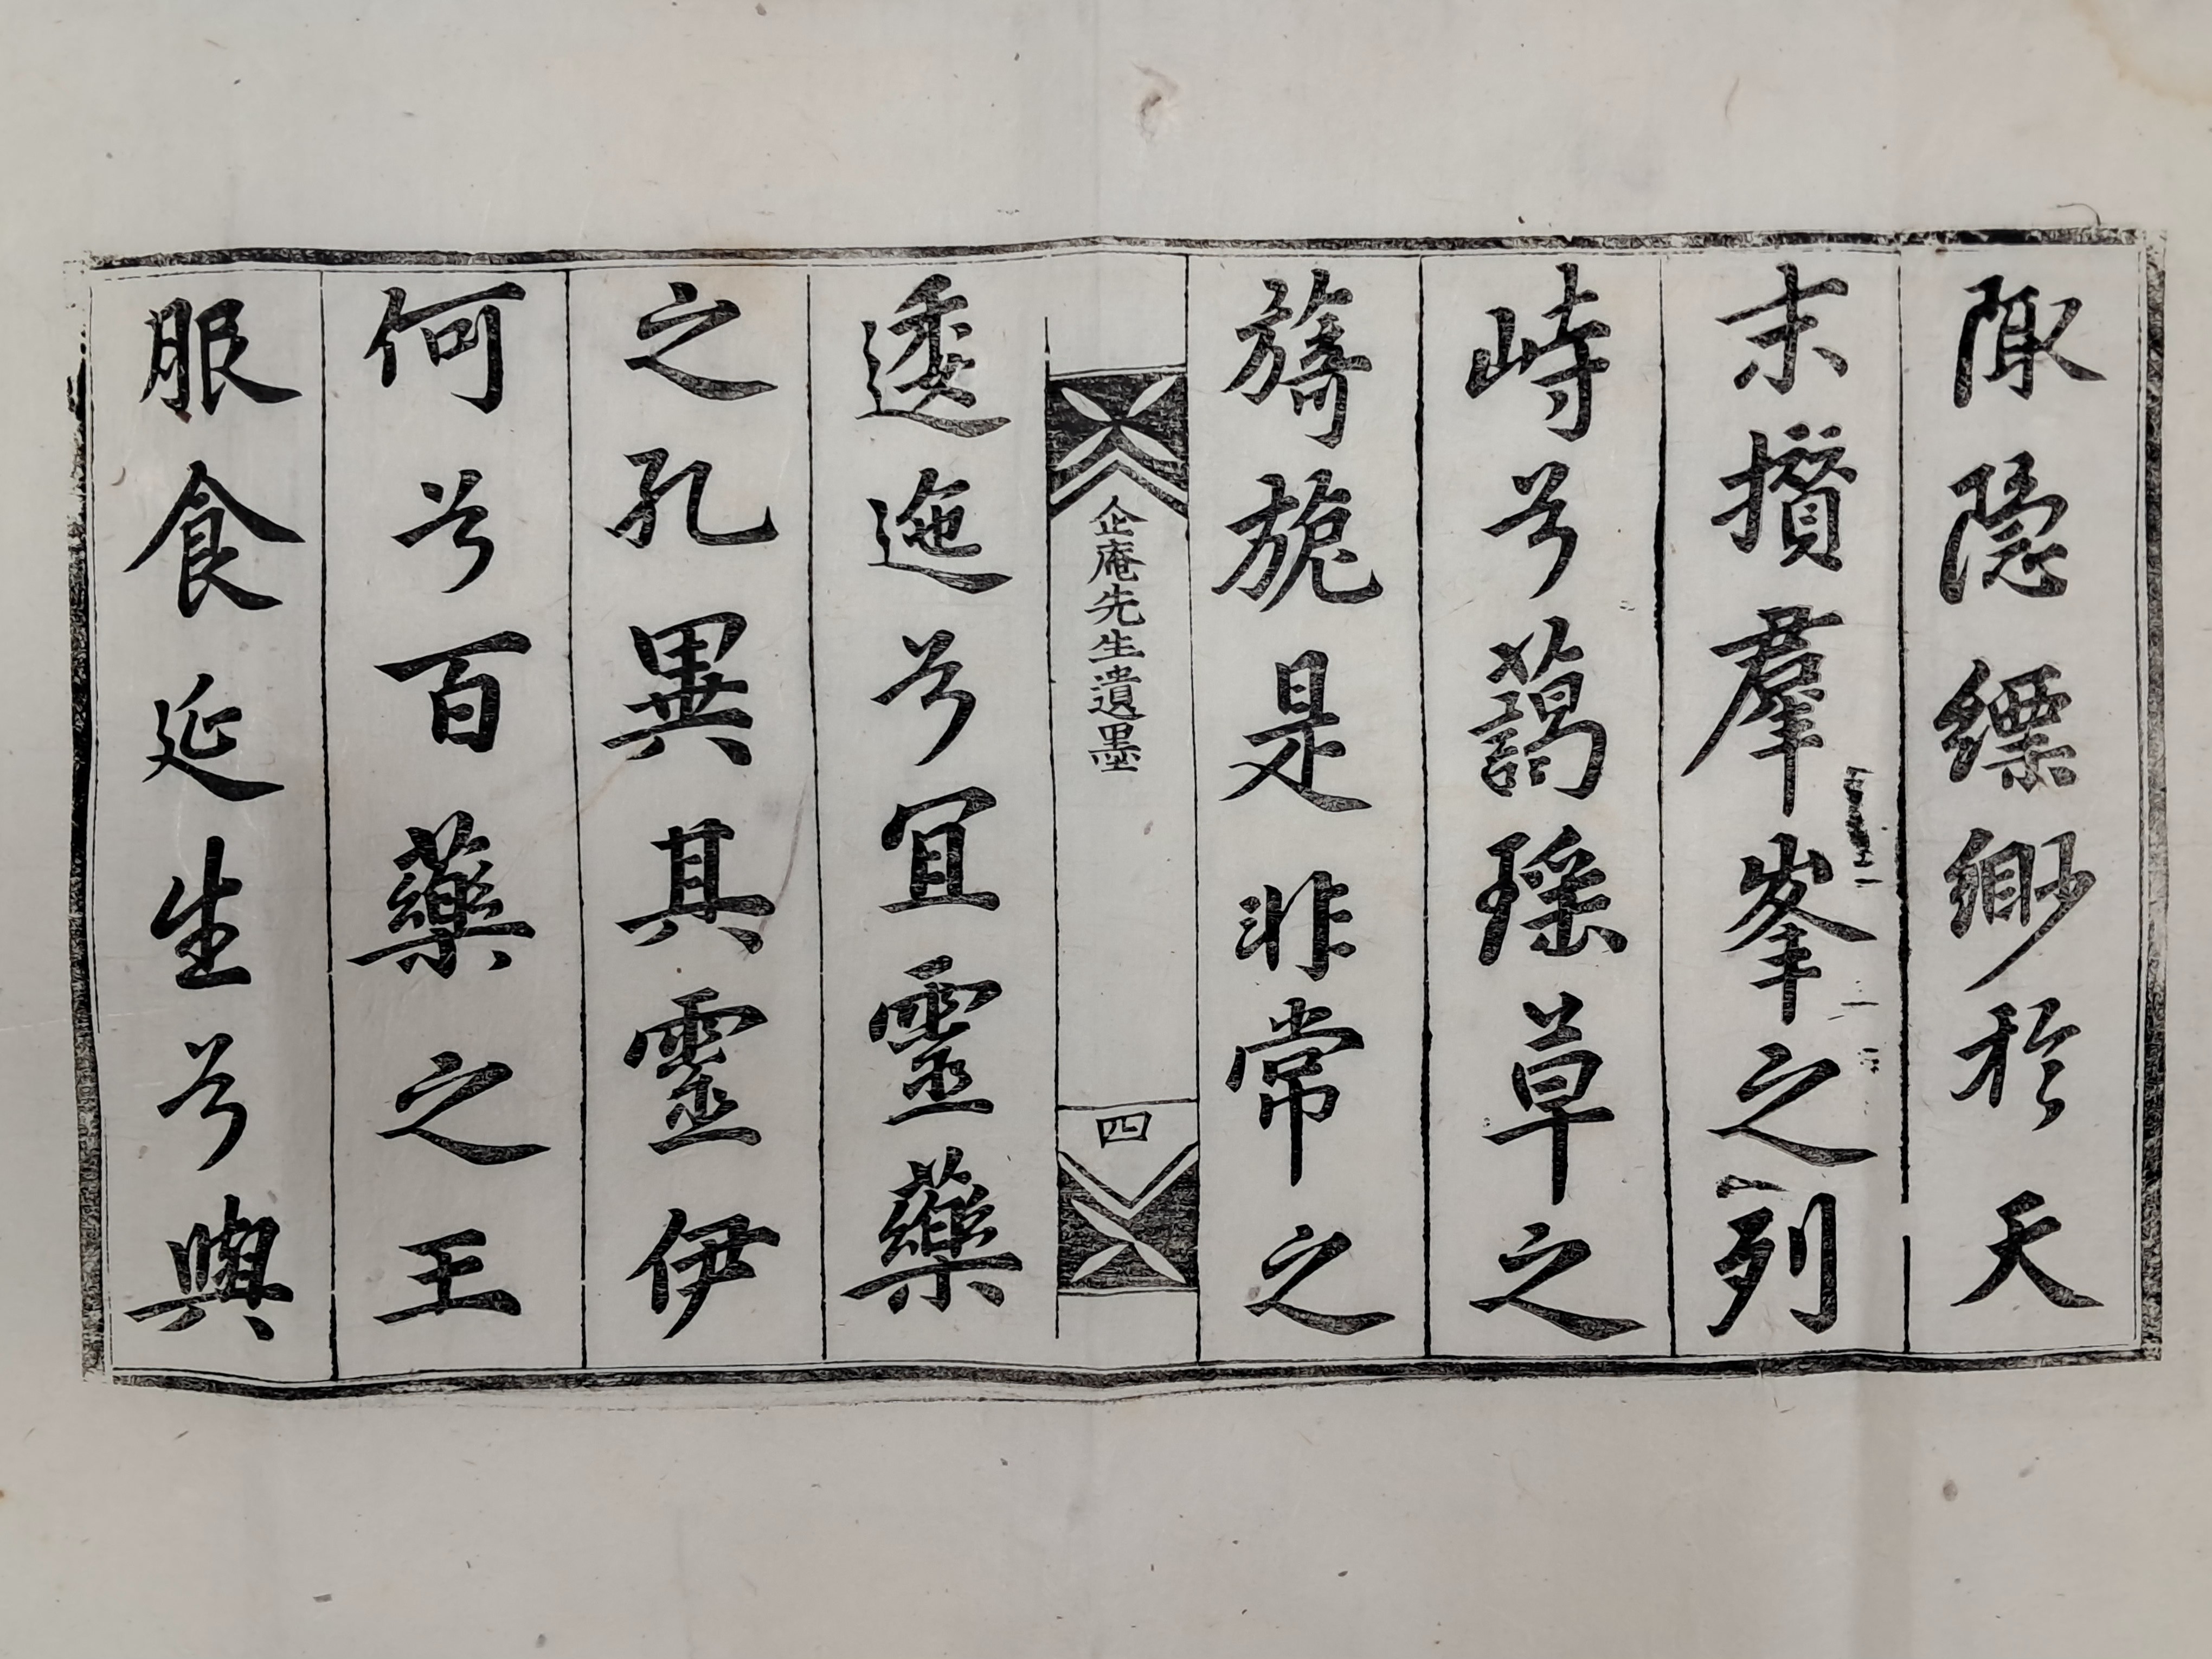 陬隠縹緲於天
末攅羣峯之列
峙兮藹瑶草之
旖旎是非常之
企庵先生遺墨
四
逶迤兮冝靈藥
之孔異其靈伊
何兮百藥之王
服食延生兮與